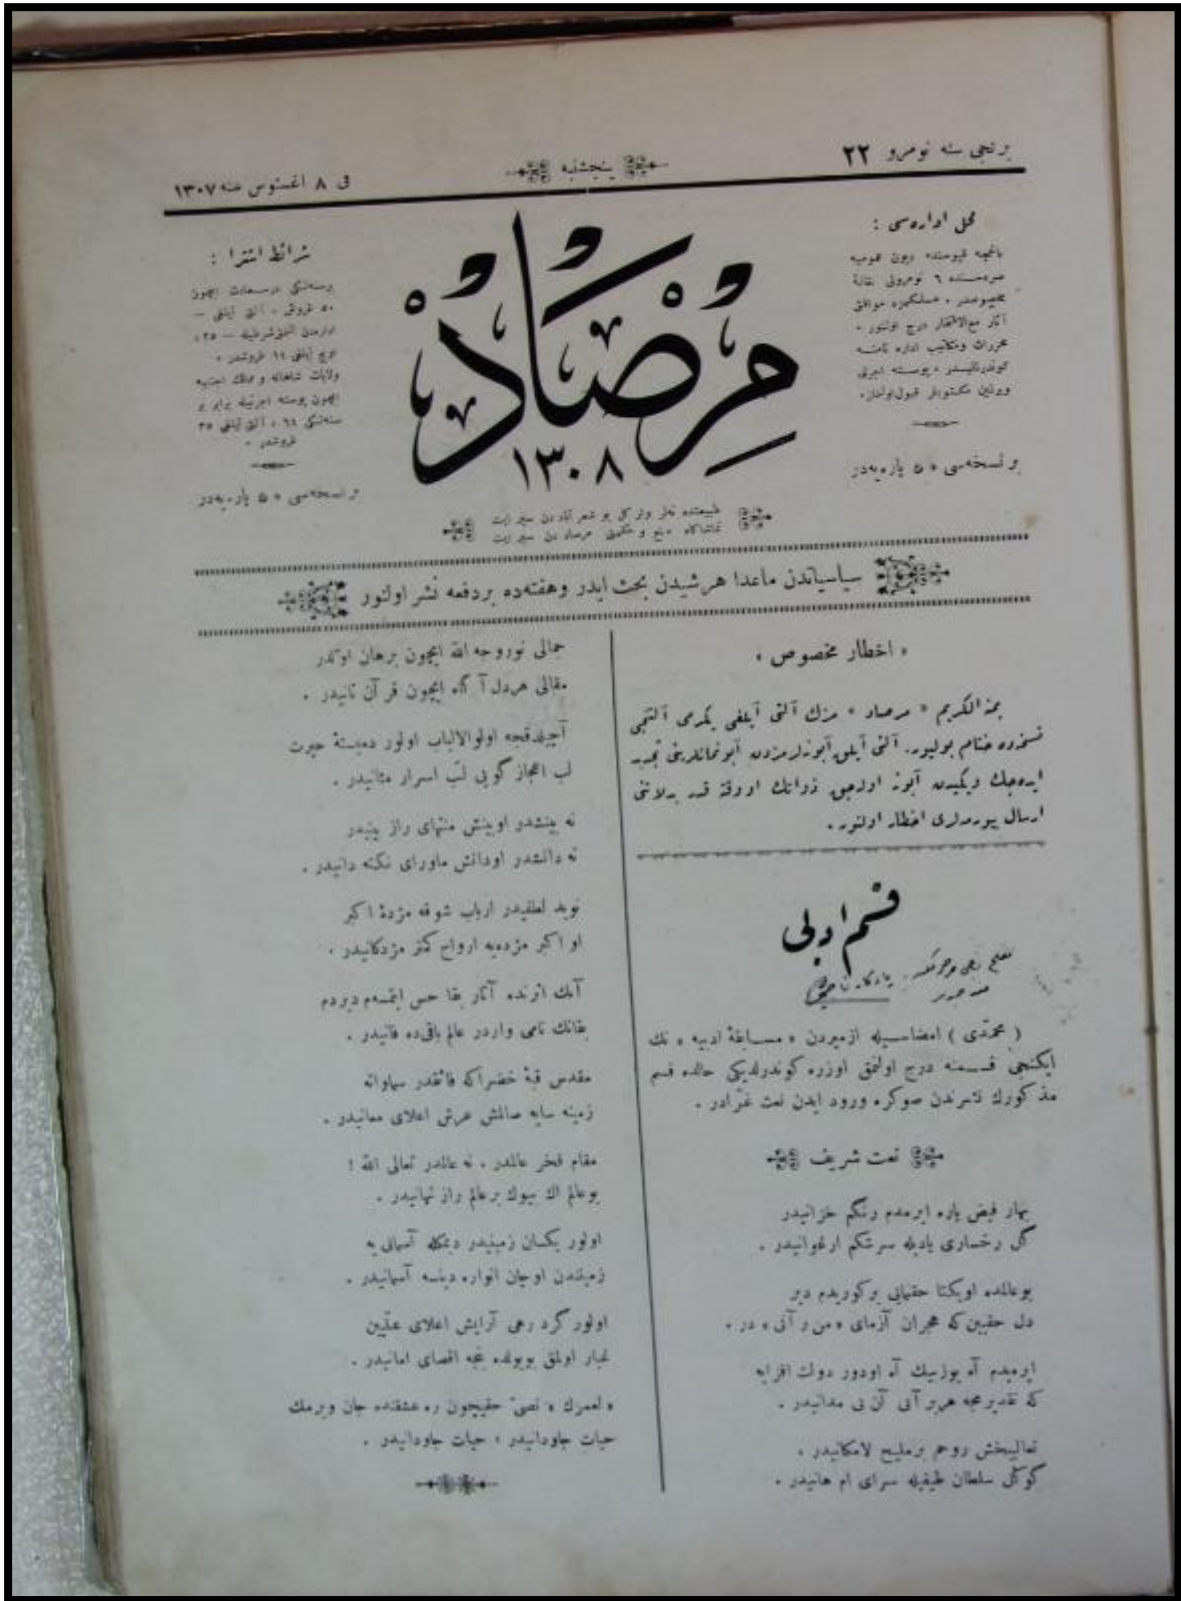 برنجی سنه نومرو ٢٢
پنجشنبه
فی ٨ اغستوس سنه ١٣٠٧
محل اداره‌سی :
باغچه قپوسنده دیون عمومیه
صره‌سنده ٦ نومرولی
مخصوصدر . مسلکمزه موافق
آثار مع الافتخار درج اولنور .
محررات ومکاتیب اداره نامنه
کوندرلمیلیدر . پوسته اجرتی
ویرلمین مکتوبلر قبول اولنماز .
بر نسخه‌سی ٥٠ پاره‌یه‌در
مرصاد
١٣٠٨
شرائط اشترا :
برسنه‌لکی درسعادت ایچون
٥٠ غروش ، آلتی آیلغی —
اداره‌دن آلنمق شرطیله — ٢٥ ،
اوچ آیلغی ١٤ غروشدر .
ولایات شاهانه و ممالک اجنبیه
ایچون پوسته اجرتیله برابر بر
سنه‌لکی ٦٤ ، آلتی آیلغی ٣٥
غروشدر .
بر نسخه‌سی ٥٠ پاره‌یه‌در
طبیعتده نه‌لر وار کل بو شعر آباددن سیر ایت
تماشاکاه و حکمتی مرصاددن سیر ایت
سیاسیاتدن ماعدا هر شیدن بحث ایدر وهفته‌ده بردفعه نشر اولنور
« اخطار مخصوص »
بمنه الکریم « مرصاد » مزک آلتی آیلغی یکرمی آلتنجی
نسخه‌ده ختام بولیور. آلتی آیلق آبونه‌لرمزدن آبونمانلرینی تجدید
ایده‌جک ویکیدن آبونه اوله‌جق ذواتک اووقته قدر بدلاتنی
ارسال بیورمه‌لری اخطار اولنور .
قسم ادبی
( محمدی ) امضاسیله ازمیردن « مسابقهٔ ادبیه » نک
ایکنجی قسمنه درج اولنمق اوزره کوندرلدیکی حالده قسم
مذکورک نشرندن صوکره ورود ایدن نعت غرادر .
نعت شریف
بهار فیض یاره ایرمدم رنکم خزانیدر
کل رخساری یادیله سرشکم ارغوانیدر .
بو عالمده او یکتا حقنمایی بر کوریدم دیر
دل حقبین که هجران آزمای « من رآنی » در .
ایرمیدم آه بوزنیک آه اودور دولت افزایه
که تقدیرمجه هر بر آنی آن بی مدانیدر .
تعالیبخش روحم بر ملیح لامکانیدر .
کوکل سلطان طیفیله سرای ام هانیدر .
جمالی نور وجه الله ایچون برهان اولدر
مقالی هردل آکاه ایچون قرآن ثانیدر .
آچیلدقجه اولوالالباب اولور دمبستهٔ حیرت
لب اعجاز کویی لب اسرار مثانیدر .
نه بینشدر او بینش منتهای راز بیندر
نه دانشدر اودانش ماورای نکته دانیدر .
نوید لطفیدر ارباب شوقه مژدهٔ اکبر
او اکبر مژده‌یه ارواح کمتر مژدکانیدر .
آنک اثرنده آثار بقا حس ایتمسه‌م دیردم
بقانک نامی واردر عالم باقی‌ده فانیدر .
مقدس قبهٔ خضراکه فائقدر سماواته
زمینه سایه صالمش عرش اعلای معانیدر .
مقام فخر عالمدر . نه عالمدر تعالی الله !
بوعالم اک بیوک بر عالم راز نهانیدر .
اولور یکسان زمینیدر دیمکله آسمانی یه
زمینندن اوچان انواره دینسه آسمانیدر .
اولور کرد رهی آرایش اعلای علیین
غبار اولمق بویولده نیجه اقصای امانیدر .
« لعمرک » نصی حقیچون ره عشقنده جان ویرمک
حیات جاودانیدر ، حیات جاودانیدر .